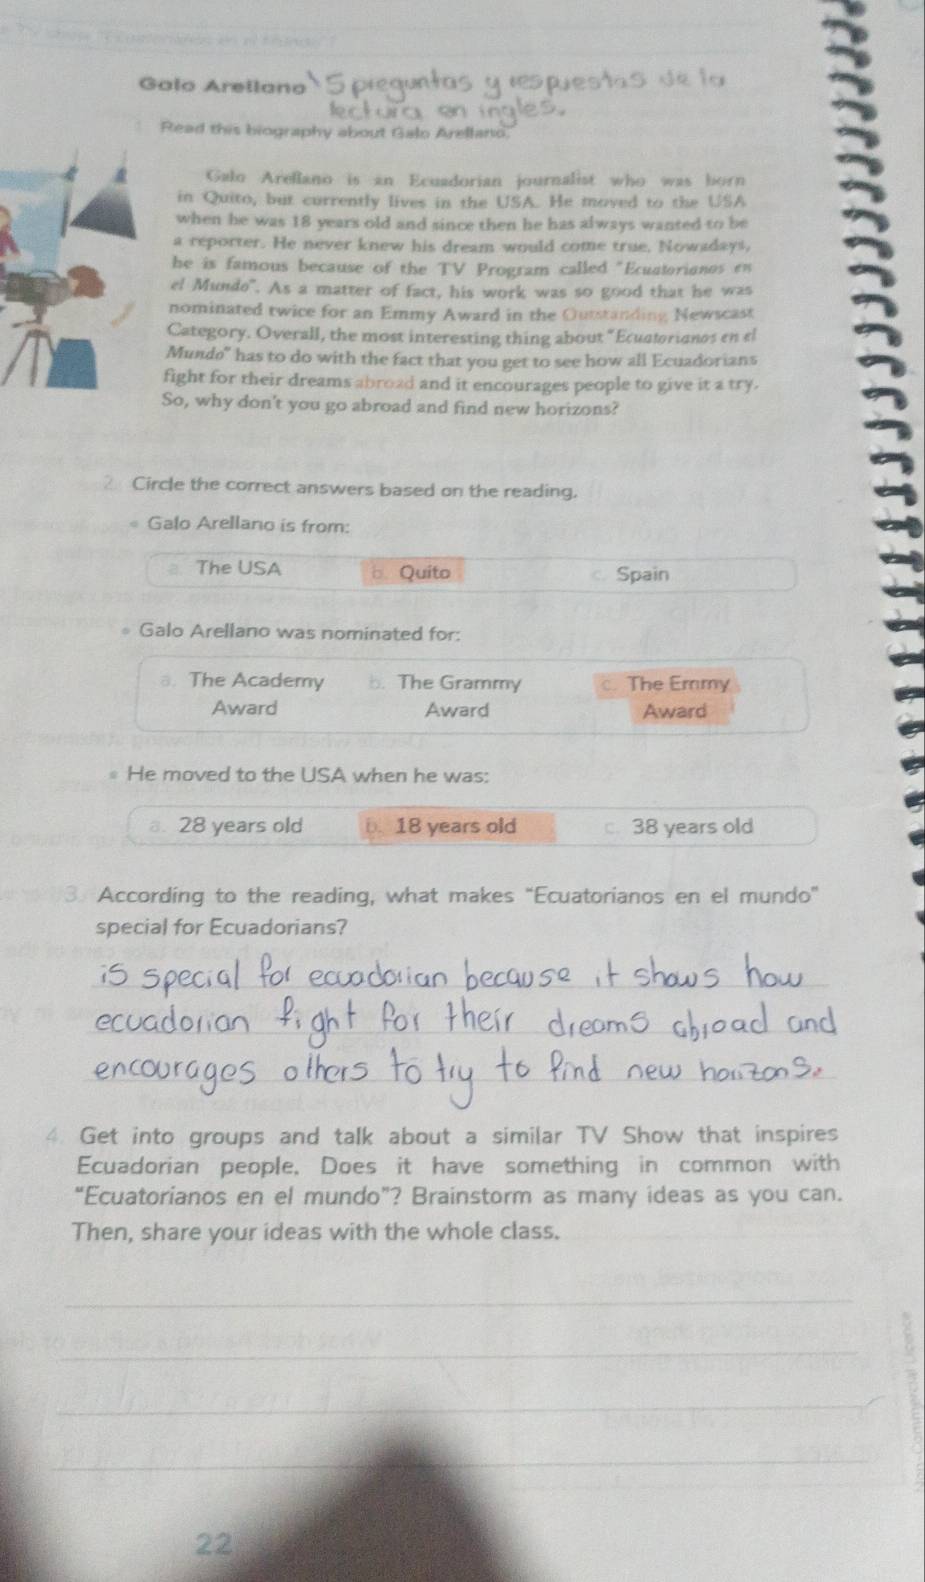 Galo Arellano 5 preguntas y respuestas de la
lectura en ingles.
Read this biography about Galo Arellano.
Galo Arellano is an Ecuadorian journalist who was born
in Quito, but currently lives in the USA. He moved to the USA
when he was 18 years old and since then he has always wanted to be
a reporter. He never knew his dream would come true. Nowadays,
he is famous because of the TV Program called "Ecuatorianos en
el Mundo". As a matter of fact, his work was so good that he was
nominated twice for an Emmy Award in the Outstanding Newscast
Category. Overall, the most interesting thing about "Ecuatorianos en el
Mundo" has to do with the fact that you get to see how all Ecuadorians
fight for their dreams abroad and it encourages people to give it a try.
So, why don't you go abroad and find new horizons?
2. Circle the correct answers based on the reading.
• Galo Arellano is from:
a. The USA b. Quito c. Spain
• Galo Arellano was nominated for:
a. The Academy b. The Grammy c. The Emmy
Award Award Award
• He moved to the USA when he was:
a. 28 years old b. 18 years old c. 38 years old
3. According to the reading, what makes "Ecuatorianos en el mundo"
special for Ecuadorians?
is special for ecuadorian because it shows how
ecuadorian fight for their dreams abroad and
encourages others to try to find new horizons.
4. Get into groups and talk about a similar TV Show that inspires
Ecuadorian people. Does it have something in common with
"Ecuatorianos en el mundo"? Brainstorm as many ideas as you can.
Then, share your ideas with the whole class.
Non-Commercial Licence
22